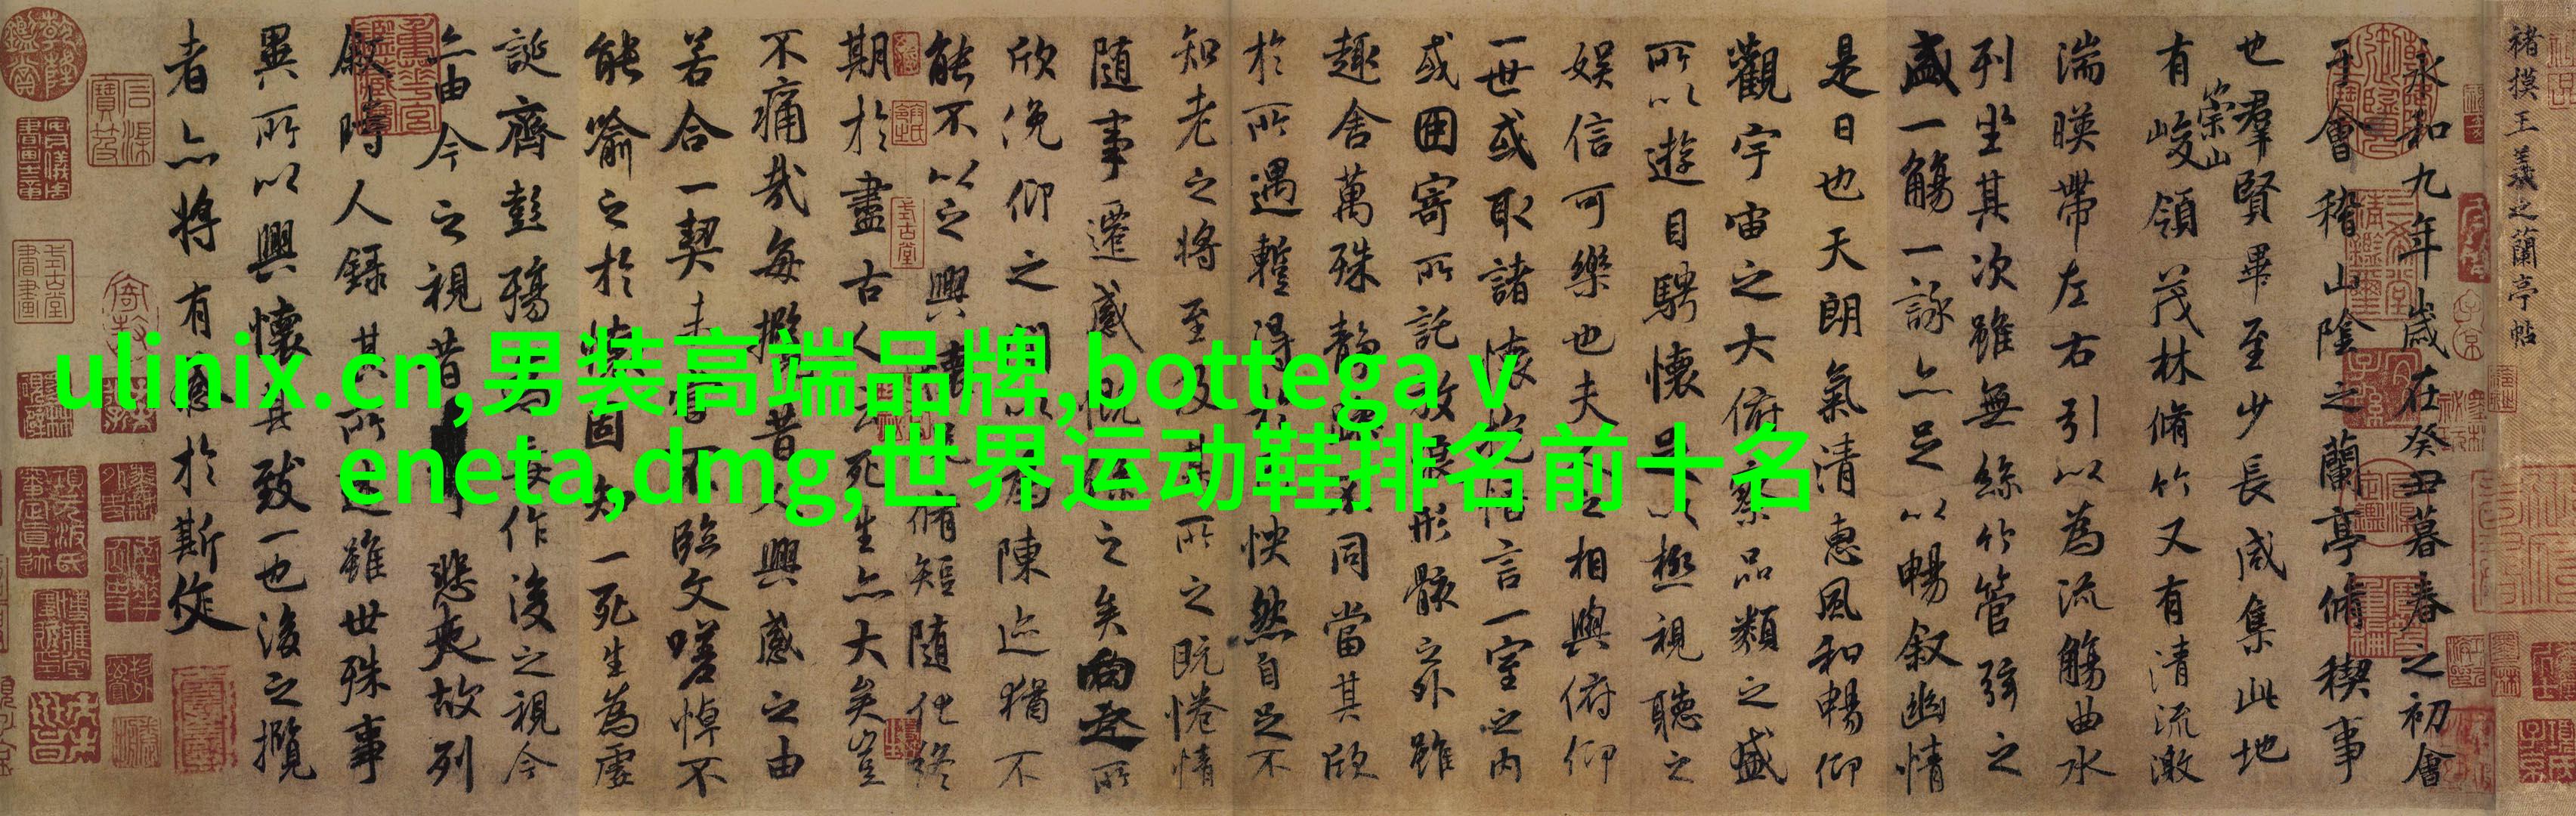 褚摸王羲之蘭亭帖
永和九年歲在癸丑暮春之初會
于會稽山陰之蘭亭脩稧事
也羣賢畢至少長咸集此地
有崇山峻領茂林脩竹又有清流激
湍暎帶左右引以為流觴曲水
列坐其次雖無絲竹管弦之
盛一觴一詠亦足以暢叙幽情
是日也天朗氣清惠風和暢仰
觀宇宙之大俯察品類之盛
所以遊目騁懷足以極視聽之
娛信可樂也夫人之相與俯仰
一世或取諸懷抱悟言一室之內
或因寄所託放浪形骸之外雖
趣舍萬殊静躁不同當其欣
於所遇蹔得於己怏然自足不
知老之將至及其所之既惓情
隨事遷感慨係之矣向之所
欣俛仰之間以為陳迹猶不
能不以之興懷況脩短隨化終
期於盡古人云死生亦大矣豈
不痛哉每攬昔人興感之由
若合一契未嘗不臨文嗟悼不
能喻之於懷固知一死生為虛
誕齊彭殤為妄作後之視今
亦由今之視昔悲夫故列
叙時人錄其所述雖世殊事
異所以興懷其致一也後之攬
者亦將有感於斯文
ulinix.cn,男装高端品牌,bottega v
eneta,dmg,世界运动鞋排名前十名